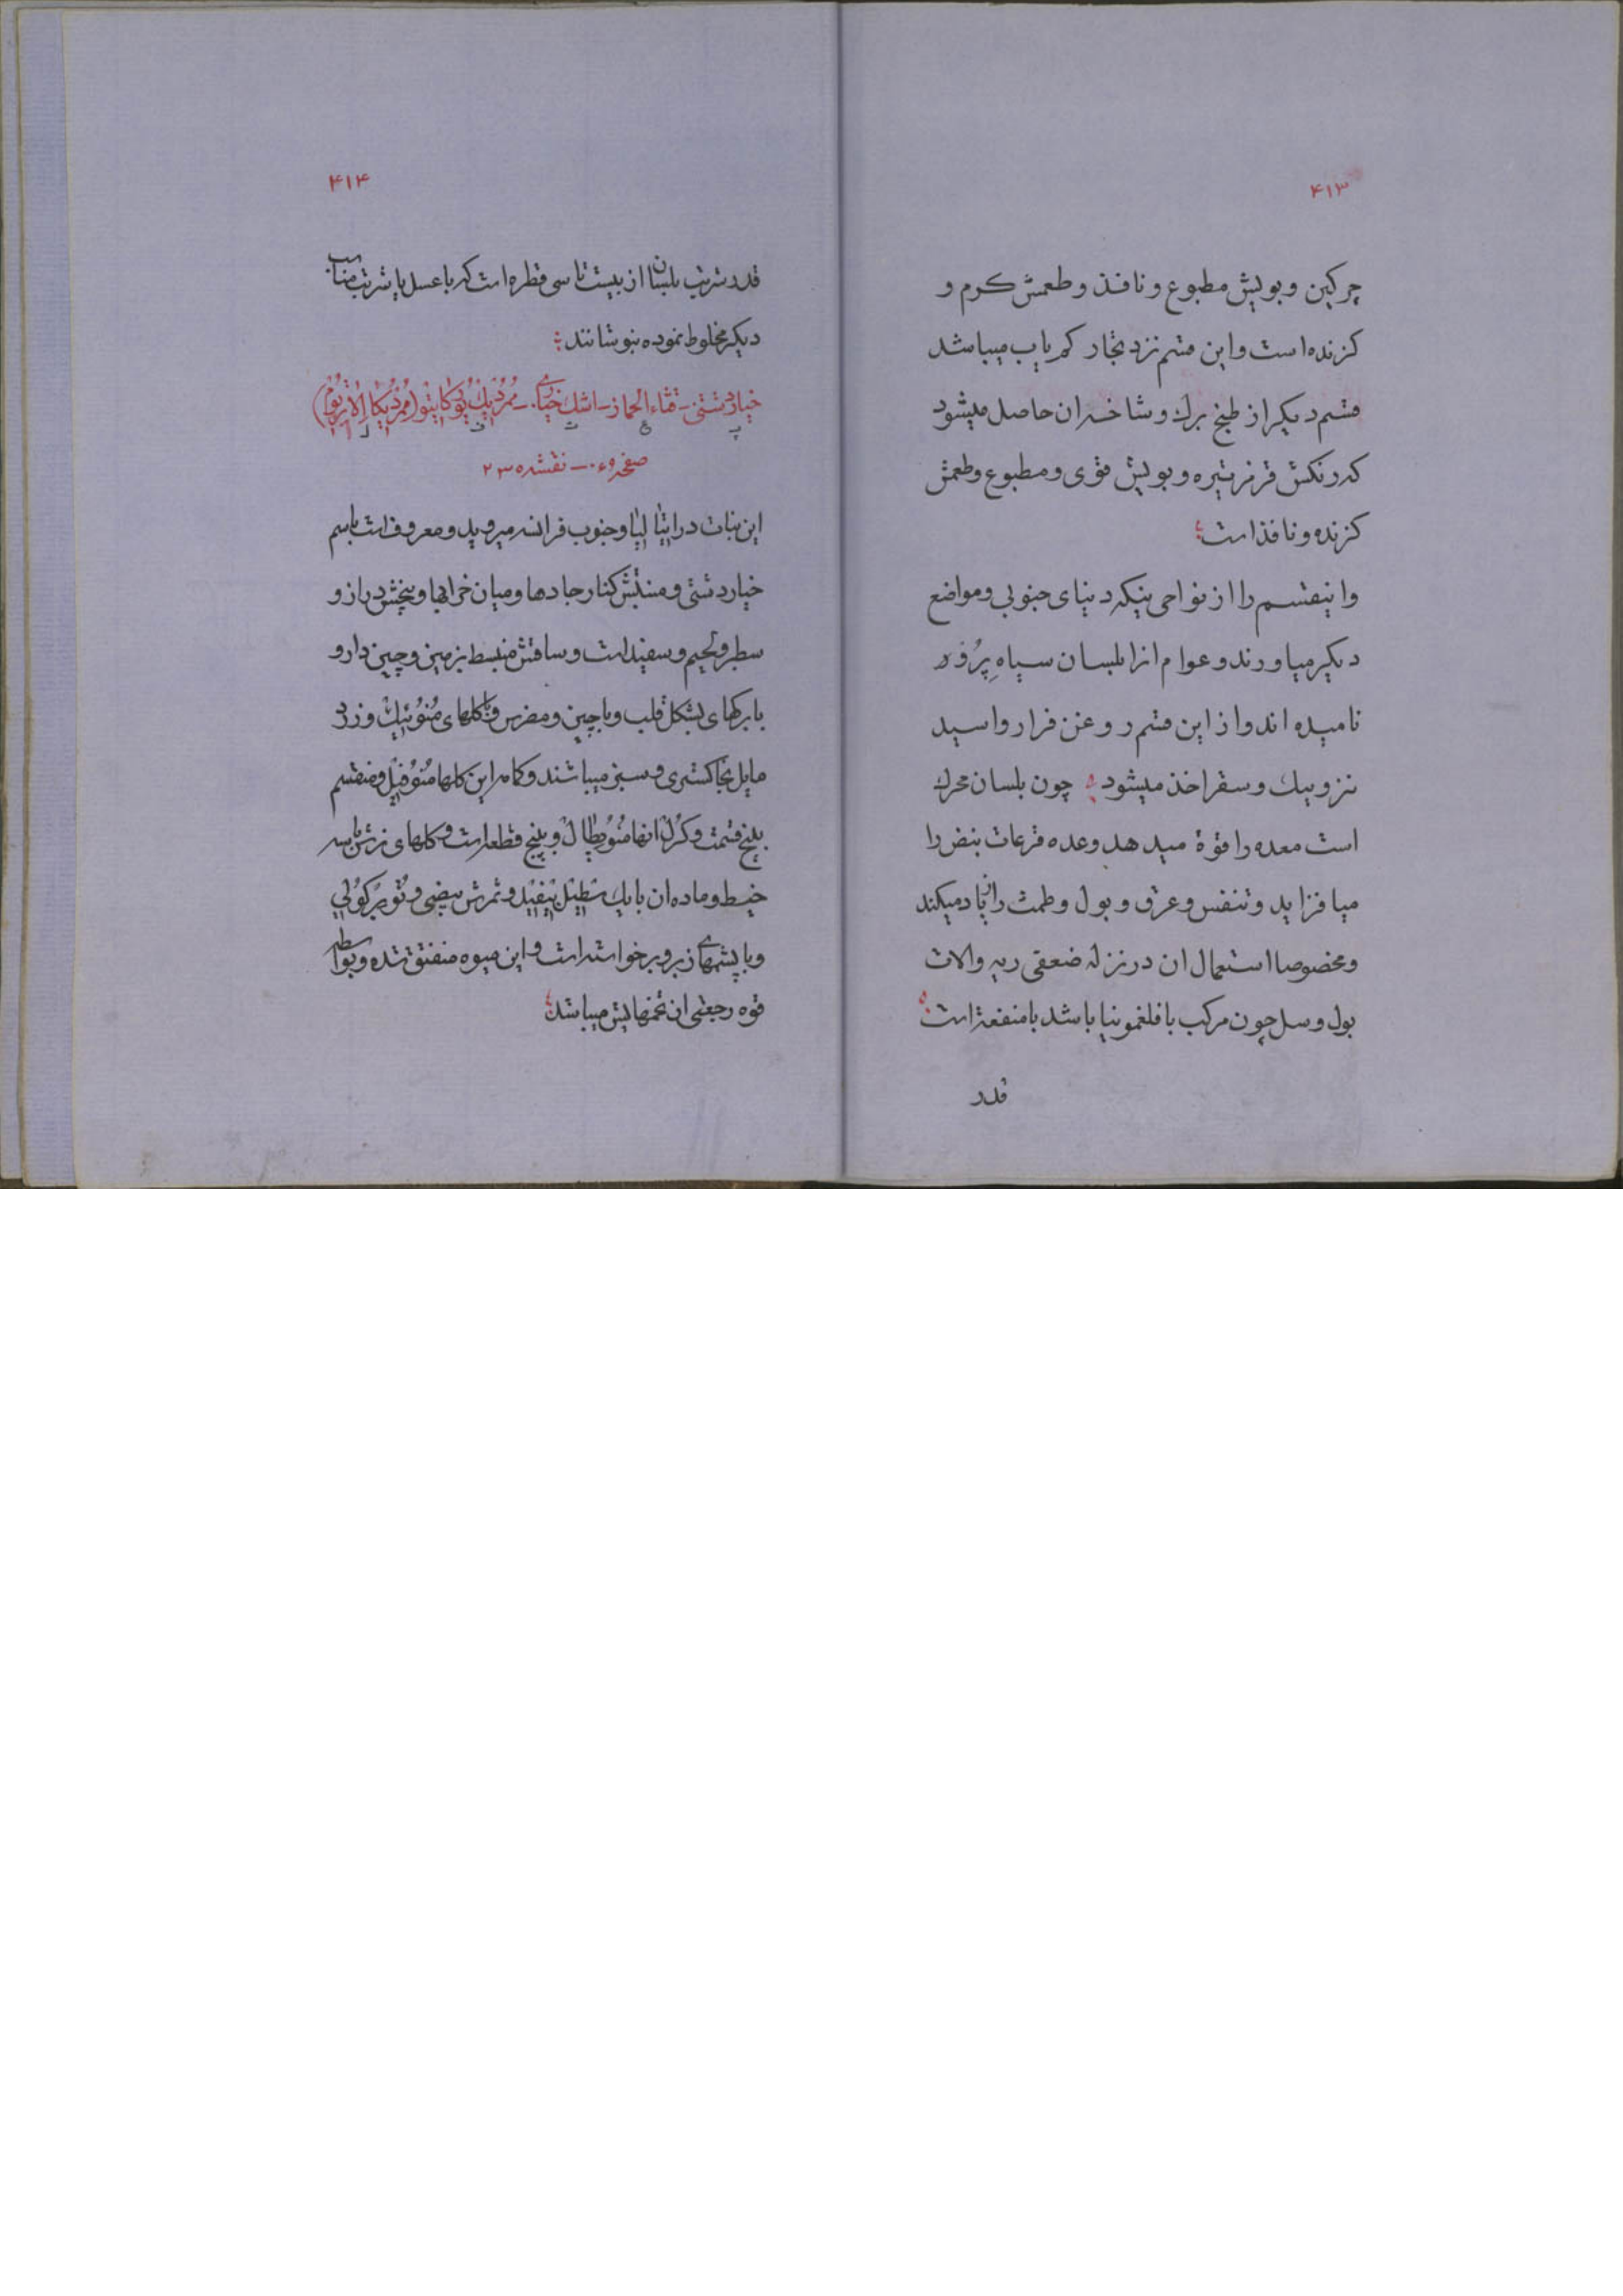 ۴۱۳
چرکین و بویش مطبوع و نافذ و طعمش کرم و
کزنده است و این قسم نزد تجار کم یاب میباشد
قسم دیکر از طبخ برك و شاخه ان حاصل میشود
که رنکش قرمز تیره و بویش قوی و مطبوع و طعمش
کزنده و نافذ است
و اینقسم را از نواحی ینیکه دنیای جنوبی و مواضع
دیکر میاورند و عوام انرا بلسان سیاه پرُو
نامیده اند و از این قسم روغن فرار و اسید
بنزوییك و سقز اخذ میشود چون بلسان محرك
است معده را قوة میدهد و عده قرعات نبض را
میافزاید و تنفس و عرق و بول و طمث را زیاد میکند
و مخصوصا استعمال ان در نزله ضعفی ریه و الات
بول و سل چون مرکب با فلغمونیا باشد بامنفعة است
قدر
۴۱۴
قدر شربت بلسان از بیست تا سی قطره است که با عسل یا شربت مناسب
دیکر مخلوط نموده بنوشانند
خیار دشتی - قثاء الحمار - اشك خیاری - مُمُرْدیك
صفحه - نقشه ۲۳۵
این نبات در ایتالیا و جنوب فرانسه میروید و معروفست باسم
خیار دشتی و منبتش کنار جادها و میان خرابها و بیخش دراز و
سطبر و لحیم و سفید است و ساقش منبسط بزمین و چین دار و
با برکهای بشکل قلب و باچین و مضرس و با کلهای مُنُوئیك و زرد
مایل بخاکستری و سبز میباشند و کاسه این کلها مُنُوفیل و منقسم
بپنج قسمت و کرُل انها مُنُوپطال و پنج قطعه است و کلهای نرش با سه
خیط و ماده ان با یك سْطیْل تْریفید و ثمرش بیضی و تُوبِرکولی
و با پشمهای زبر و برخواسته است و این میوه منفتق شده و بواسطه
قوه رجعی ان تخمهایش میپاشد